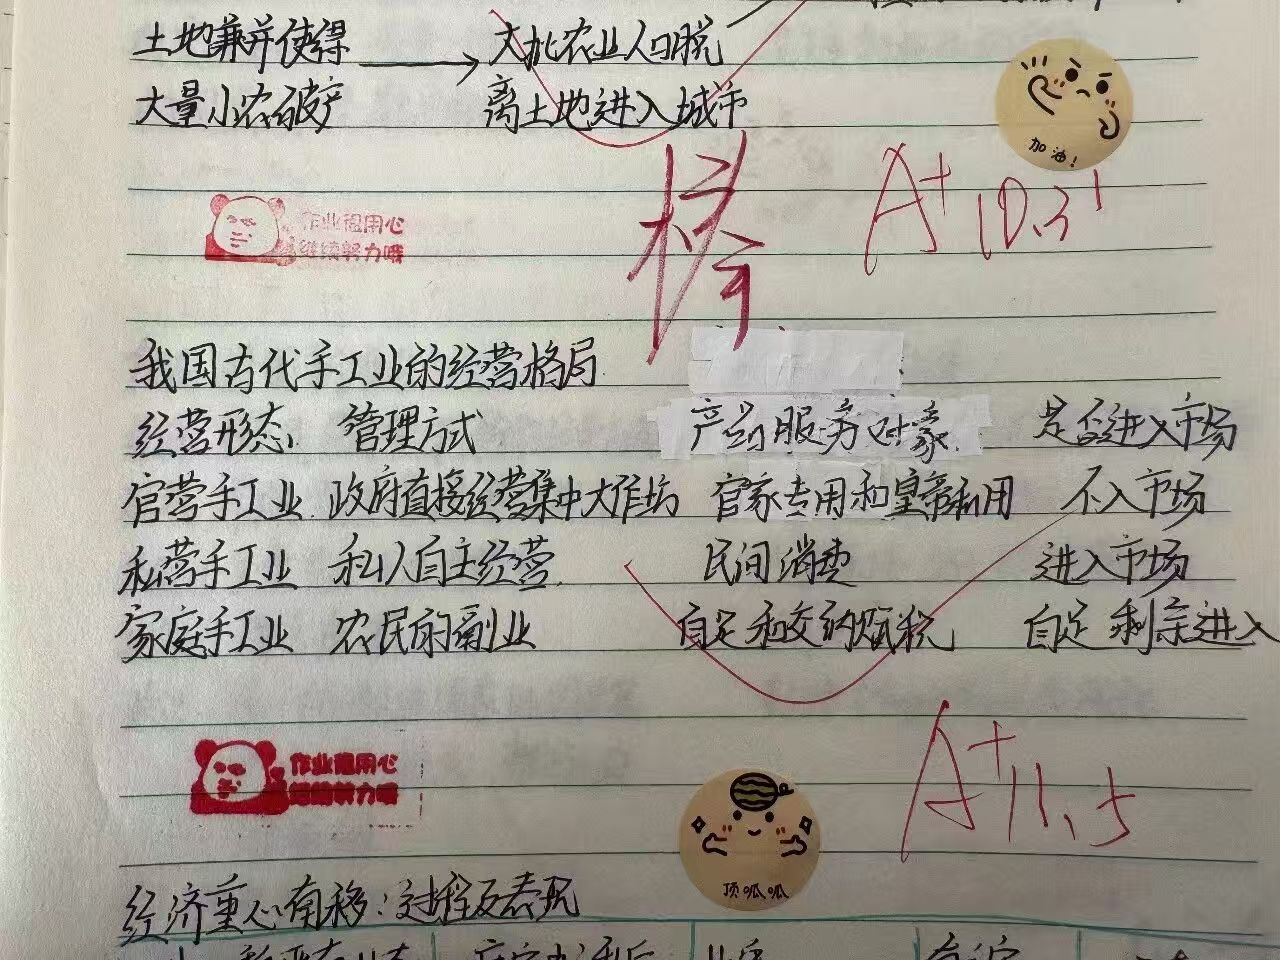 土地兼并使得 大批农业人口脱
大量小农破产 离土地进入城市
加油!
棒 A+ 10.31
作业很用心
继续努力哦
我国古代手工业的经营格局
经营形态 管理方式 产品服务对象 是否进入市场
官营手工业 政府直接经营集中大作坊 官家专用和皇帝私用 不入市场
私营手工业 私人自主经营 民间消费 进入市场
家庭手工业 农民的副业 自足和交纳赋税 自足 剩余进入
A+ 11.5
作业很用心
继续努力哦
顶呱呱
经济重心南移:过程及表现